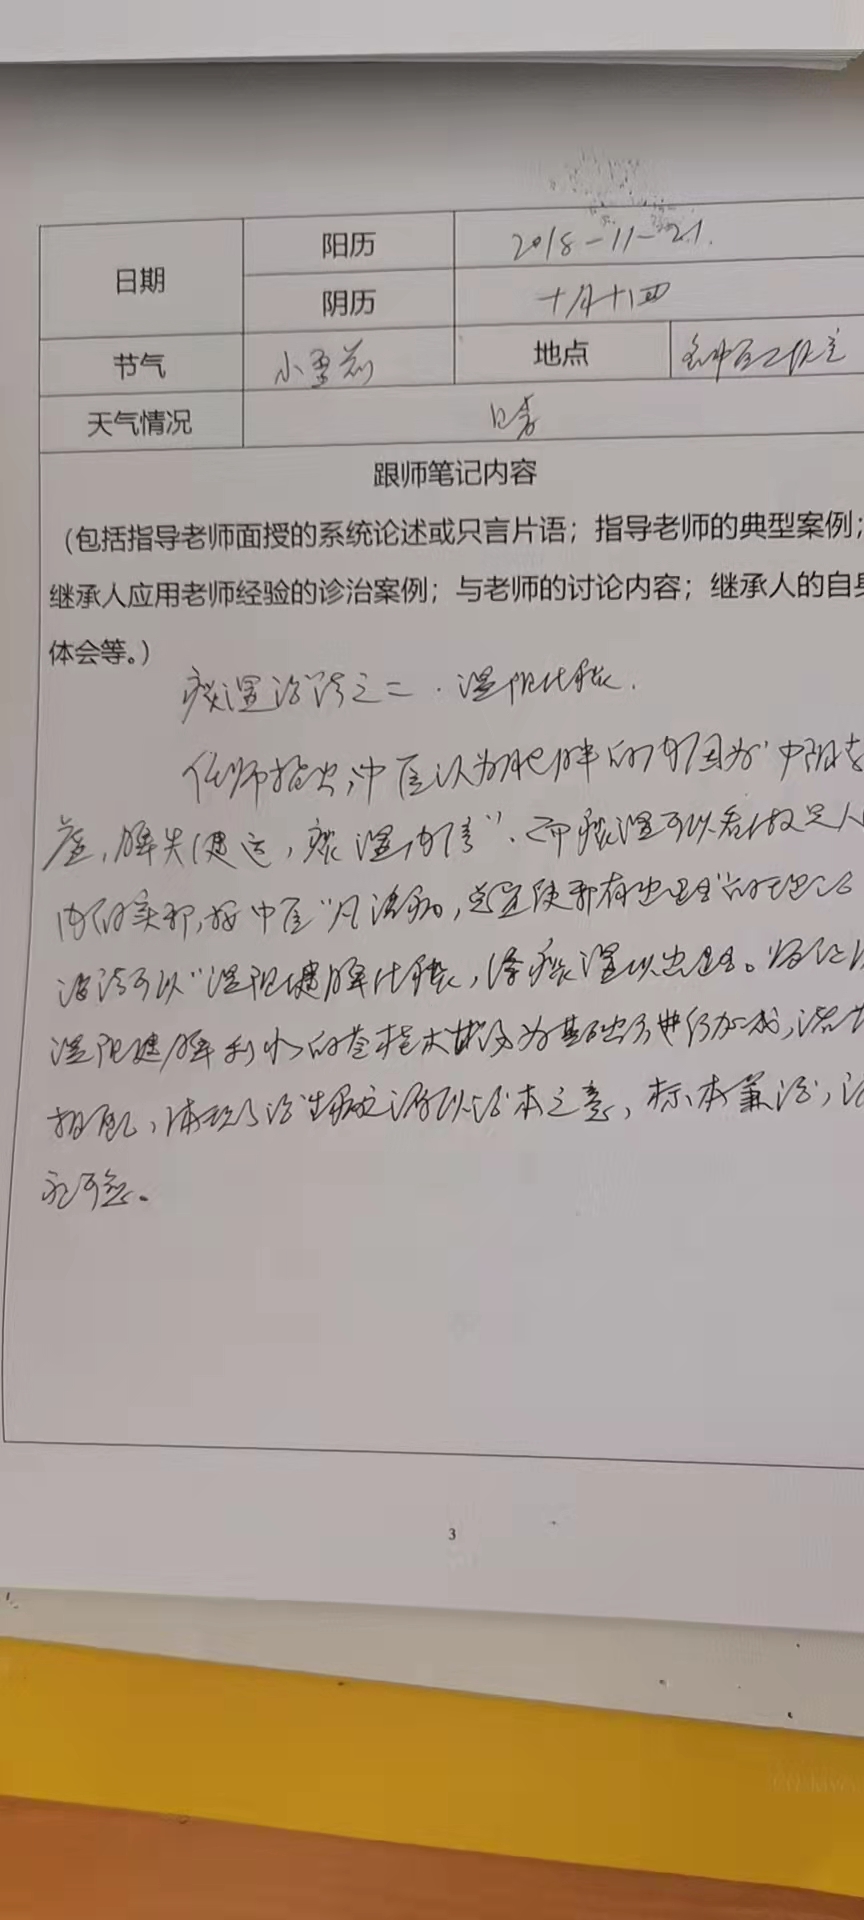 日期 阳历 2018-11-21.
阴历 十月十四
节气 小雪前 地点 名中医工作室
天气情况 晴
跟师笔记内容
（包括指导老师面授的系统论述或只言片语；指导老师的典型案例；
继承人应用老师经验的诊治案例；与老师的讨论内容；继承人的自身
体会等。）
痰湿治法之二．温阳化痰．
任师指出，中医认为肥胖的内因为“中阳
虚，脾失健运，痰湿内停”．而痰湿可以看做是人
内的实邪，按中医“凡治病，总宜使邪有出路”的
治法可以“温阳健脾化痰，使痰湿以出路。
温阳健脾利水的苓桂术甘汤为基础方进行加减，
相配，体现了治生痰之源以治本之意，标本兼治，
3